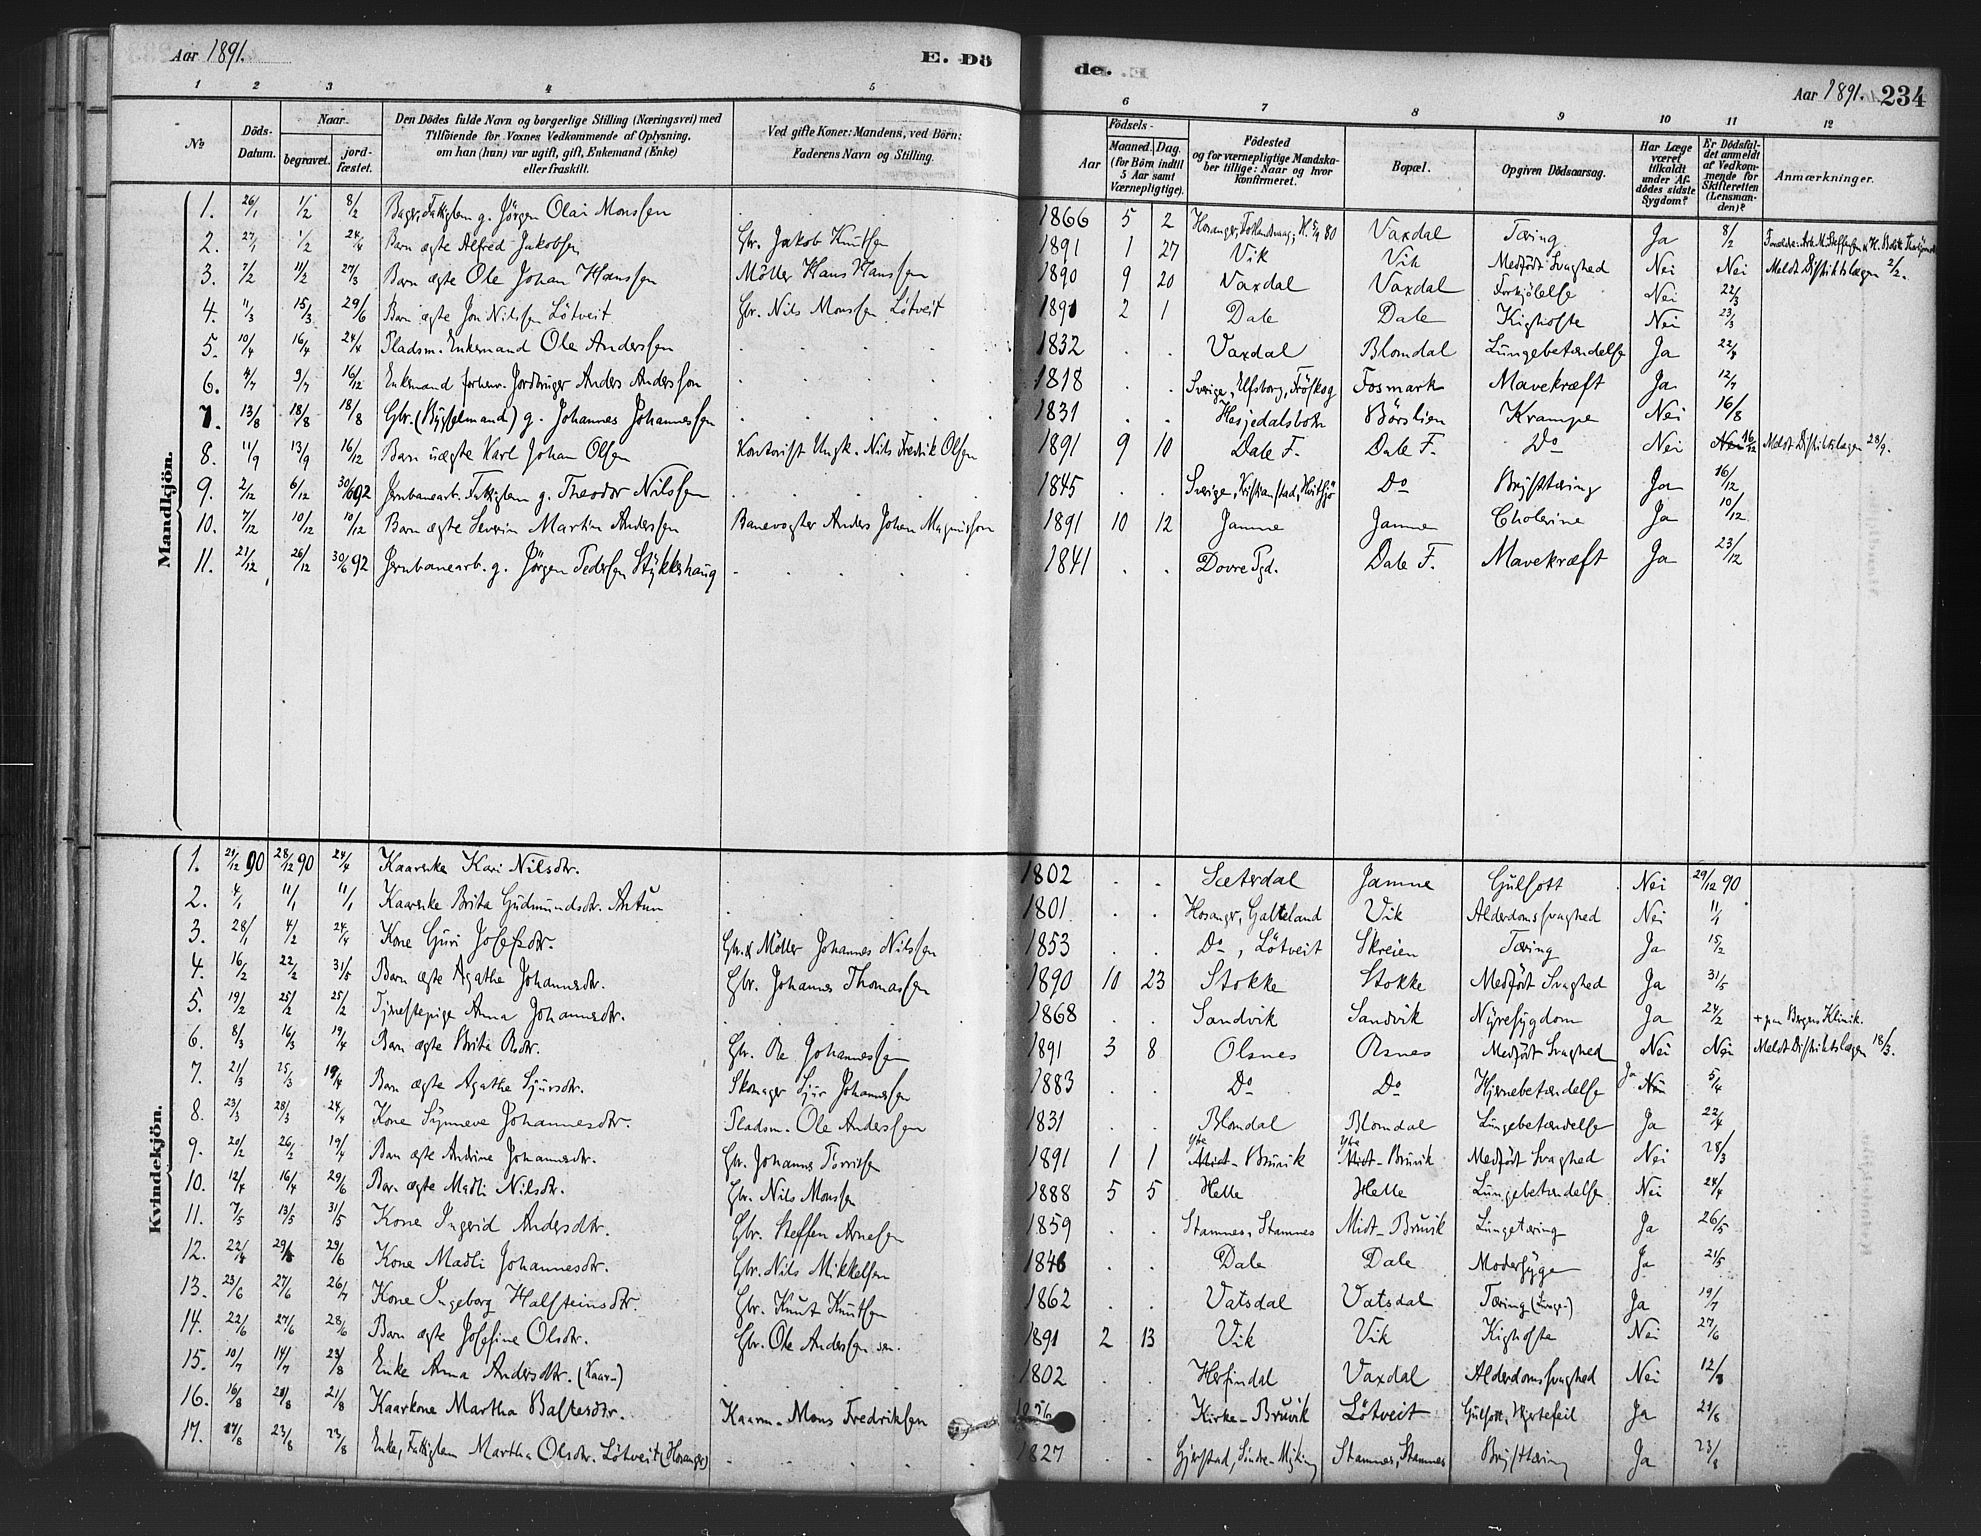 Aar 1891. E. Dö de. Aar 1891. 234
1 2 3 4 5 6 7 8 9 10 11 12
No
Döds-Datum.
Naar
begravet.
jord-fæstet.
Den Dödes fulde Navn og borgerlige Stilling (Næringsvei) med
Tilföiende for Voxnes Vedkommende af Oplysning,
om han (hun) var ugift, gift, Enkemand (Enke)
eller fraskilt.
Ved gifte Koner: Mandens, ved Börn:
Faderens Navn og Stilling.
Födsels-
Aar
Maaned. Dag.
(for Börn indtil
5 Aar samt
Værnepligtige).
Födested
og for værnepligtige Mandska-
ber tillige: Naar og hvor
konfirmeret.
Bopæl.
Opgiven Dödsaarsag.
Har Læge
været
tilkaldt
under Af-
dödes sidste
Sygdom?
Er Dödsfal-
det anmeldt
af Vedkom-
mende for
Skifteretten
(Lensman-
den)?
Anmærkninger.
Mandkjön.
1. 26/1 1/2 8/2 Bager, Fattiglem g. Jörgen Olai Monssen . . 1866 5 2 Hosanger, Vaxdal Tæring Ja 8/2
2. 27/1 1/2 24/4 Barn ægte Alfred Jakobsen Gbr. Jakob Knutsen 1891 1 27 Vik Vik Medfödt Svaghed Nei Nei Meldt Distriktslægen 2/2.
3. 7/2 11/2 27/3 Barn ægte Ole Johan Hanssen Möller Hans Hanssen 1890 9 20 Vaxdal Vaxdal Forkjölelse Nei 22/3
4. 11/3 15/3 29/6 Barn ægte Jon Nilssen Lötveit Gbr. Nils Monssen Lötveit 1891 2 1 Dale Dale Kighoste Nei 23/3
5. 10/4 16/4 24/4 Pladsm. Enkemand Ole Anderssen . . . 1832 . . Vaxdal Blomdal Lungebetændelse Ja 22/4
6. 4/7 9/7 16/12 Enkemand forhenv. Jordbruger Anders Andersson . . . 1818 . . Sverige, Elfsborg, Fröskog Fosmark Mavekræft Ja 12/7
7. 13/8 18/8 18/8 Gbr. (Bygselmand) g. Johannes Johannessen . . . 1831 . . Hesjedalsbotn Börslien Krampe Nei 16/8
8. 11/9 13/9 16/12 Barn uægte Karl Johan Olsen Kontorist Ungk. Nils Fredrik Olsen 1891 9 10 Dale F. Dale F. Do Nei Nei 16/12 Meldt Distriktslægen 28/9.
9. 2/12 6/12 30/6 92 Jernbanearb. Fattiglem g. Theodor Nilssen . . . 1845 . . Sverige, Kristianstad, Do Brysttæring Ja 16/12
10. 7/12 10/12 10/12 Barn ægte Severin Martin Anderssen Banevogter Anders Johan Magnusson 1891 10 12 Jamne Jamne Cholerine Ja 10/12
11. 21/12 26/12 30/6 92 Jernbanearb. g. Jörgen Pedersen Stykkshaug . . . 1841 . . Dovre Pgd. Dale F. Mavekræft Ja 23/12
Kvindekjön.
1. 21/12 90 28/12 90 24/4 Kaarenke Kari Nilsdtr. . . . 1802 . . Seterdal Jamne Gulsott Nei 29/12 90
2. 4/1 11/1 11/1 Kaarenke Brita Gudmundsdtr. Antun . . . 1801 . . Hosanger, Galteland Vik Alderdomssvaghed Nei 11/1
3. 28/1 4/2 24/4 Kone Guri Josefsdtr. Gbr. & Möller Johannes Nilssen 1853 . . Do, Lötveit Skreien Tæring Ja 15/2
4. 16/2 22/2 31/5 Barn ægte Agatha Johannesdtr. Gbr. Johannes Thomassen 1890 10 23 Stokke Stokke Medfödt Svaghed Ja 31/5
5. 19/2 25/2 25/2 Tjenestepige Anna Johannesdtr. . . . 1868 . . Sandvik Sandvik Nyresygdom Ja 24/2 + paa Bergens Klinik.
6. 8/3 16/3 19/4 Barn ægte Brita Olsdtr. Gbr. Ole Johannessen 1891 3 8 Olsnes Olsnes Medfödt Svaghed Nei Nei Meldt Distriktslægen 18/3.
7. 21/3 25/3 19/4 Barn ægte Agatha Sjursdtr. Skomager Sjur Johannessen 1883 . . Do Do Hjernebetændelse Ja Nei 5/4
8. 23/3 28/3 24/4 Kone Synneve Johannesdtr. Pladsm. Ole Anderssen 1831 . . Blomdal Blomdal Lungebetændelse Ja 22/4
9. 20/2 26/2 19/4 Barn ægte Andrine Johannesdtr. Gbr. Johannes Torrissen 1891 1 1 Ytre Midt-Bruvik Ytre Midt-Bruvik Medfödt Svaghed Nei 28/3
10. 12/4 16/4 29/6 Barn ægte Madli Nilsdtr. Gbr. Nils Monssen 1888 5 5 Helle Helle Lungebetændelse Nei 24/4
11. 7/5 13/5 31/5 Kone Ingrid Andersdtr. Gbr. Steffen Arnesen 1859 . . Stamnes, Stamnes Midt-Bruvik Lungetæring Ja 26/5
12. 22/4 29/4 29/6 Kone Madli Johannesdtr. Gbr. Nils Mikkelsen 1846 . . Dale Dale Modersyge Ja 21/5
13. 23/6 27/6 26/7 Kone Ingeborg Halsteinsdtr. Gbr. Knut Knutsen 1862 . . Vatsdal Vatsdal Tæring (Lunge-) Ja 19/7
14. 22/6 27/6 28/6 Barn ægte Josefine Olsdtr. Gbr. Ole Anderssen sen. 1891 2 13 Vik Vik Kighoste Nei 27/6
15. 10/7 14/7 23/8 Enke Anna Andersdtr. (Kaar-) . . . 1802 . . Herfindal Vaxdal Alderdomssvaghed Nei 12/8
16. 16/8 21/8 21/8 Kaarkone Martha Bastesdtr. Kaarm. Mons Fredriksen . . Kirke-Bruvik Lötveit Gulsott, Hjertefeil Ja 21/8
17. 17/8 23/8 23/8 Enke, Fattiglem Martha Olsdtr. Lötveit (Hosanger) . . . 1827 . . Gjerstad, Söndre-Mjking Stamnes, Stamnes Brysttæring Ja 23/8